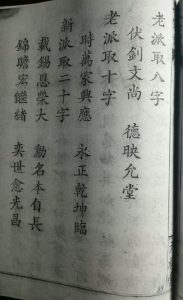 老派取八字
伏劍文尚　德映允堂
老派取十字
時萬家興應　永正乾坤臨
新派取二十字
載錫恩榮大　勳名本自長
錦瞻宏繼緒　奕世愈光昌